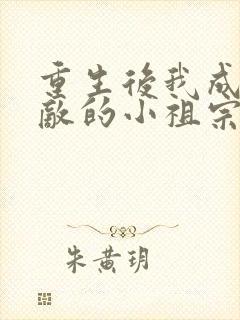 重生後我成
敵的小祖宗
朱黄玥